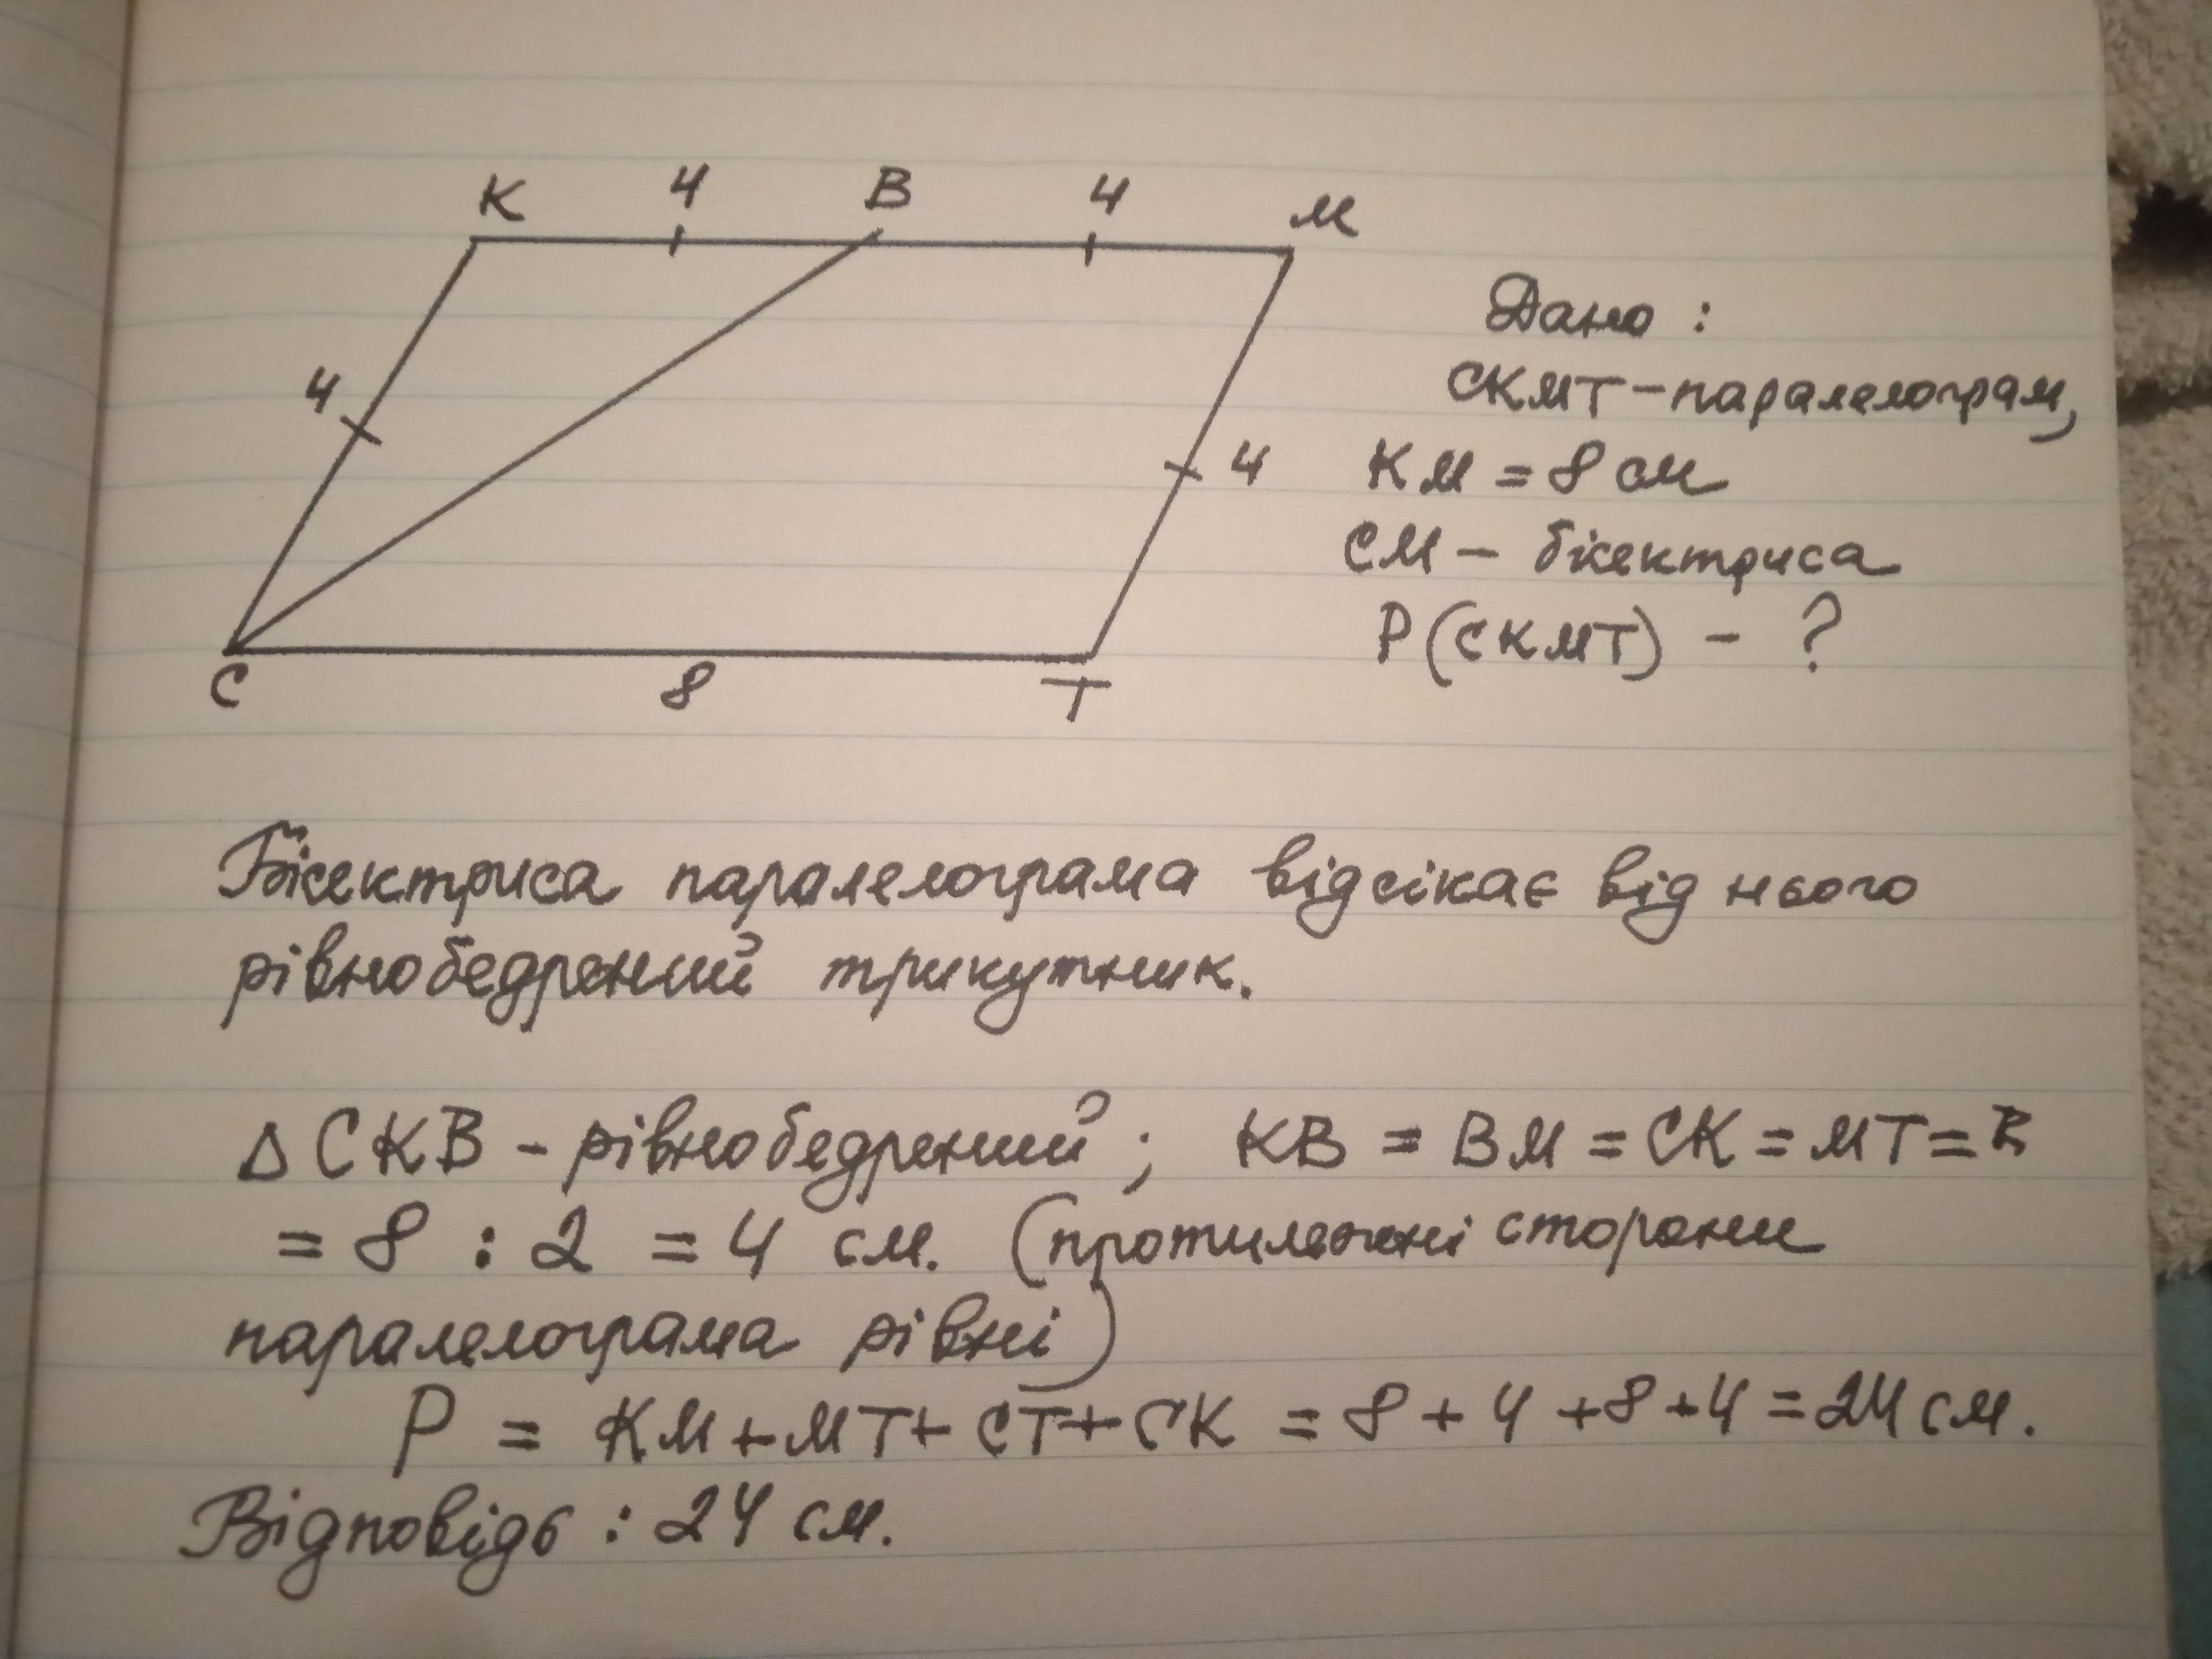 К 4 В 4 М
4
4
С 8 Т
Дано :
СКМТ – паралелограм,
КМ = 8 см
СМ – бісектриса
Р (СКМТ) – ?
Бісектриса паралелограма відсікає від нього
рівнобедрений трикутник.
Δ СКВ – рівнобедрений ; КВ = ВМ = СК = МТ =
= 8 : 2 = 4 см. (протилежні сторони
паралелограма рівні)
Р = КМ + МТ + СТ + СК = 8 + 4 + 8 + 4 = 24 см.
Відповідь : 24 см.